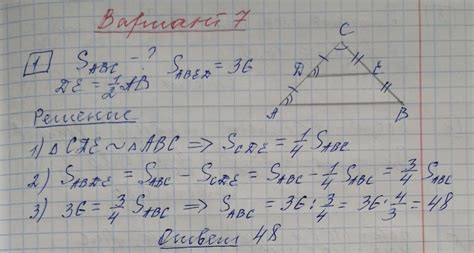 Вариант 7
1 S_ABC - ? S_ABED = 36
DE = 1/2 AB
C
D E
A B
Решение
1) △CDE ~ △ABC ⇒ S_CDE = 1/4 S_ABC
2) S_ABDE = S_ABC - S_CDE = S_ABC - 1/4 S_ABC = 3/4 S_ABC
3) 36 = 3/4 S_ABC ⇒ S_ABC = 36 : 3/4 = 36 · 4/3 = 48
Ответ 48